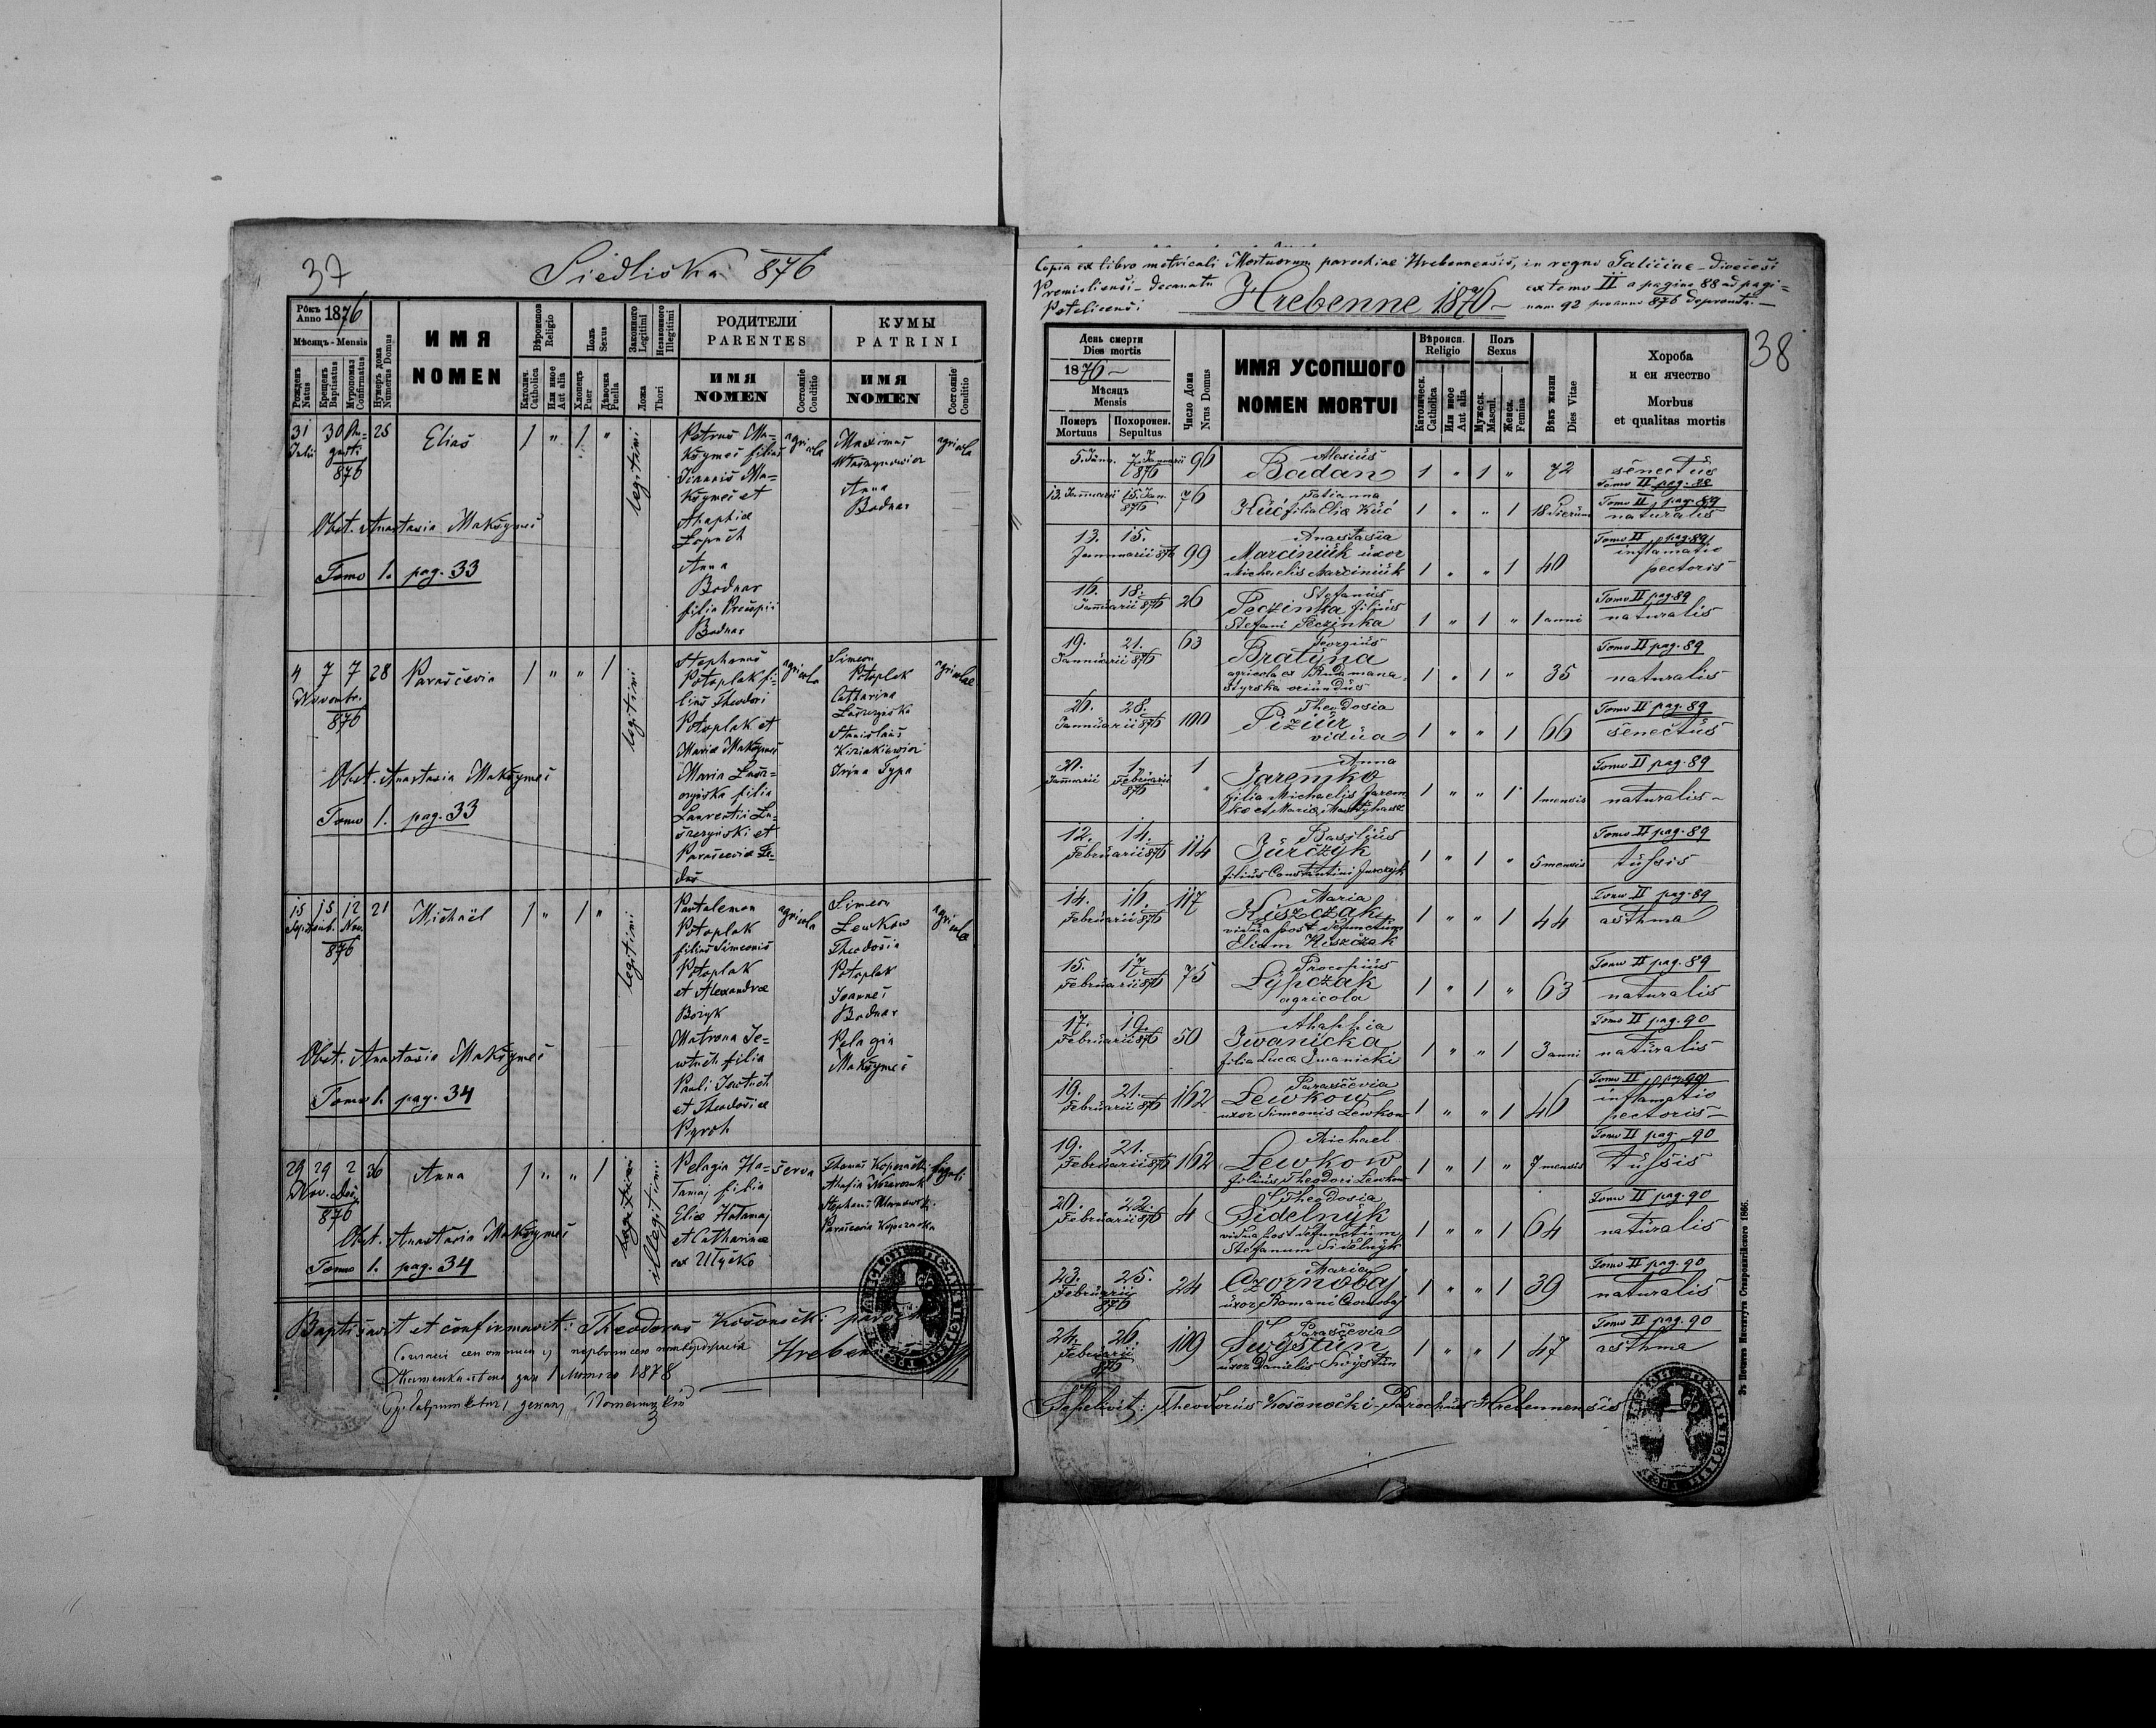 37
Siedliska 876
Рôкъ Anno 1876
Мѣсяцъ - Mensis
Рожденъ Natus
Крещенъ Baptisatus
Муропомаз Confirmatus
Нумеръ дома Numerus Domus
ИМЯ
NOMEN
Вѣроиспов Religio
Католич. Catholica
Или иное Aut alia
Полъ Sexus
Хлопець Puer
Дѣвочка Puella
Законного Legitimi
Незаконного Illegitimi
Ложа Thori
РОДИТЕЛИ
PARENTES
ИМЯ
NOMEN
Состояніе Conditio
КУМЫ
PATRINI
ИМЯ
NOMEN
Состояніе Conditio
31 30 Au- 25 Elias 1 " 1 " legitimi
Julii gusti
876
Petrus Ma-
ksymes filius
Joannis Ma-
ksymes et
Ahaphiæ
Anna
Bodnar
filia Procopii
Bodnar
agricola
Maximus
Anna
Bodnar
agricola
Obst. Anastasia Maksymes
Tomo 1. pag. 33
4 7 7 28 Parascevia 1 " " 1 legitimi
Novembr.
876
Stephanus
Potoplak fi-
lius Theodori
Potoplak et
Mariæ Maksymes
Maria Lasz-
czyńska filia
Laurentii La-
szczyński et
Parasceviæ Fe-
dus
agricola
Simeon
Potoplak
Catharina
Laszczyńska
Stanislaus
Irina Typa
agricolae
Obst. Anastasia Maksymes
Tomo 1. pag. 33
15 15 12 21 Michaël 1 " 1 " legitimi
Septemb. Nov.
876
Pantalemon
Potoplak
filius Simeonis
Potoplak
et Alexandræ
Bozyk
Matrona Je-
wtuch filia
Pauli Jewtuch
et Theodosiæ
Pyroh
agricola
Simeon
Lewkow
Theodosia
Potoplak
Joannes
Bodnar
Pelagia
Maksymes
agricola
Obst. Anastasia Maksymes
Tomo 1. pag. 34
29 29 2 36 Anna 1 " " 1 legitimi illegitimi
Nov. Dec.
876
Pelagia Ha-
tamaj filia
Eliæ Hatamaj
et Catharinæ
serva
Obst. Anastasia Maksymes
Tomo 1. pag. 34
Baptisavit et confirmavit: Theodorus Kosonocki parochus
Hreben
1878
Copia ex libro metricali Mortuorum parochiae Hrebennensis, in regno Galiciae - Diœcesi
Premisliensi - Decanatu
Potelicensi
Hrebenne 1876 -
ex tomo II a pagina 88 ad pagi-
nam 92 pro anno 876 deprompta. -
38
День смерти
Dies mortis
1876 -
Мѣсяцъ
Mensis
Померъ Mortuus
Похоронен. Sepultus
Число Дома Nrus Domus
ИМЯ УСОПШОГО
NOMEN MORTUI
Вѣроисп. Religio
Католическ. Catholica
Или иное Aut alia
Полъ Sexus
Мужеск. Mascul.
Женск. Femina
Вѣкъ жизни Dies Vitae
Хороба
и єи ячество
Morbus
et qualitas mortis
5. Jann. 7. Januarii 876 96 Alexius
Badan 1 " 1 " 72 senectus
Tomo II pag. 88
13. Januarii 15. Jan. 876 76 Tatianna
Kuć filia Eliæ Kuć 1 " " 1 18 dierum naturalis
Tomo II pag. 89
13. 15. Januarii 876 99 Anastasia
Marciniuk uxor
Michaelis Marciniuk 1 " " 1 40 inflamatio
pectoris
Tomo II pag. 89
16. 18. Januarii 876 26 Stefanus
Peczinka filius
Stefani Peczinka 1 " 1 " 1 anni naturalis
Tomo II pag. 89
19. 21. Januarii 876 63 Georgius
Bratyna
agricola ex Ruda mana-
styrska oriundus 1 " 1 " 35 naturalis
Tomo II pag. 89
26. 28. Januarii 876 100 Theodosia
Piziur
vidua 1 " " 1 66 senectus
Tomo II pag. 89
Januarii 1. Februarii 876 1 Anna
Jaremko
filia Michaelis Jarem-
ko et Mariæ 1 " " 1 1 mensis naturalis -
Tomo II pag. 89
12. 14. Februarii 876 114 Basilius
Jurczyk
filius Constantini Jurczyk 1 " 1 " 5 mensis tussis
Tomo II pag. 89
14. 16. Februarii 876 117 Maria
Kiszczak
vidua post defunctum
Eliam Kiszczak 1 " " 1 44 asthma
Tomo II pag. 89
15. 17. Februarii 876 75 Procopius
Lypczak
agricola 1 " 1 " 63 naturalis
Tomo II pag. 90
17. 19. Februarii 876 50 Ahaphia
Iwanicka
filia Lucæ Iwanicki 1 " " 1 3 anni naturalis
Tomo II pag. 90
19. 21. Februarii 876 162 Parascevia
Lewkow
uxor Simeonis Lewkow 1 " " 1 46 inflamatio
pectoris -
Tomo II pag. 90
19. 21. Februarii 876 162 Michael
Lewkow
filius Theodori Lewkow 1 " 1 " 7 mensis tussis
Tomo II pag. 90
20. 22. Februarii 876 4 Theodosia
Sidelnyk
vidua post defunctum
Stefanum Sidelnyk 1 " " 1 64 naturalis
Tomo II pag. 90
23. 25. Februarii 876 24 Maria
Czornobaj
uxor Romani Czornobaj 1 " " 1 39 naturalis
Tomo II pag. 90
24. 26. Februarii 876 109 Parascevia
Swystun
uxor Danielis Swystun 1 " " 1 47 asthma
Sepelivit: Theodorus Kosonocki - Parochus Hrebennensis
Зъ Печатнѣ Института Ставропигійского 1866.